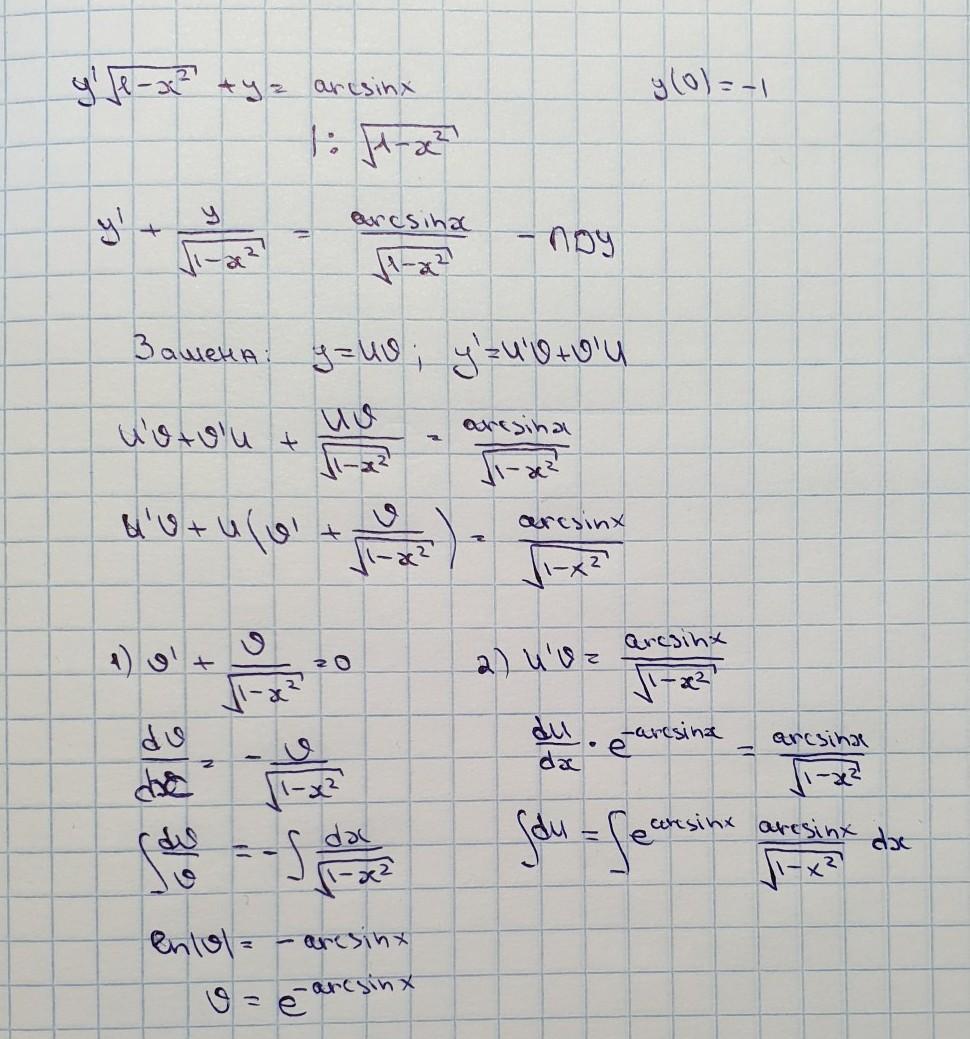 y'√(1-x²) + y = arcsinx    y(0) = -1
|: √(1-x²)
y' + y/√(1-x²) = arcsinx/√(1-x²) - ЛДУ
Замена: y = uv; y' = u'v + v'u
u'v + v'u + uv/√(1-x²) = arcsinx/√(1-x²)
u'v + u(v' + v/√(1-x²)) = arcsinx/√(1-x²)
1) v' + v/√(1-x²) = 0
dv/dx = - v/√(1-x²)
∫ dv/v = -∫ dx/√(1-x²)
ln|v| = - arcsinx
v = e^(-arcsinx)
2) u'v = arcsinx/√(1-x²)
du/dx · e^(-arcsinx) = arcsinx/√(1-x²)
∫du = ∫e^(arcsinx) arcsinx/√(1-x²) dx